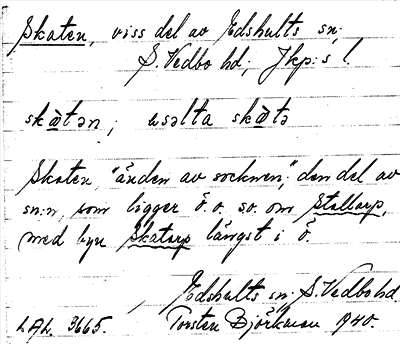 Skaten, viss del av Edshults sn;
S. Vedbo hd; Jkp:s l.
skɑ̀tən; esəlta skɑ̀tə
Skaten, "änden av socknen," den del av
sn:n, som ligger ö. o. so. om Stallarp,
med byn Skatarp längst i ö.
Edshults sn; S. Vedbo hd
LAL. 3665. Torsten Björkman 1940.